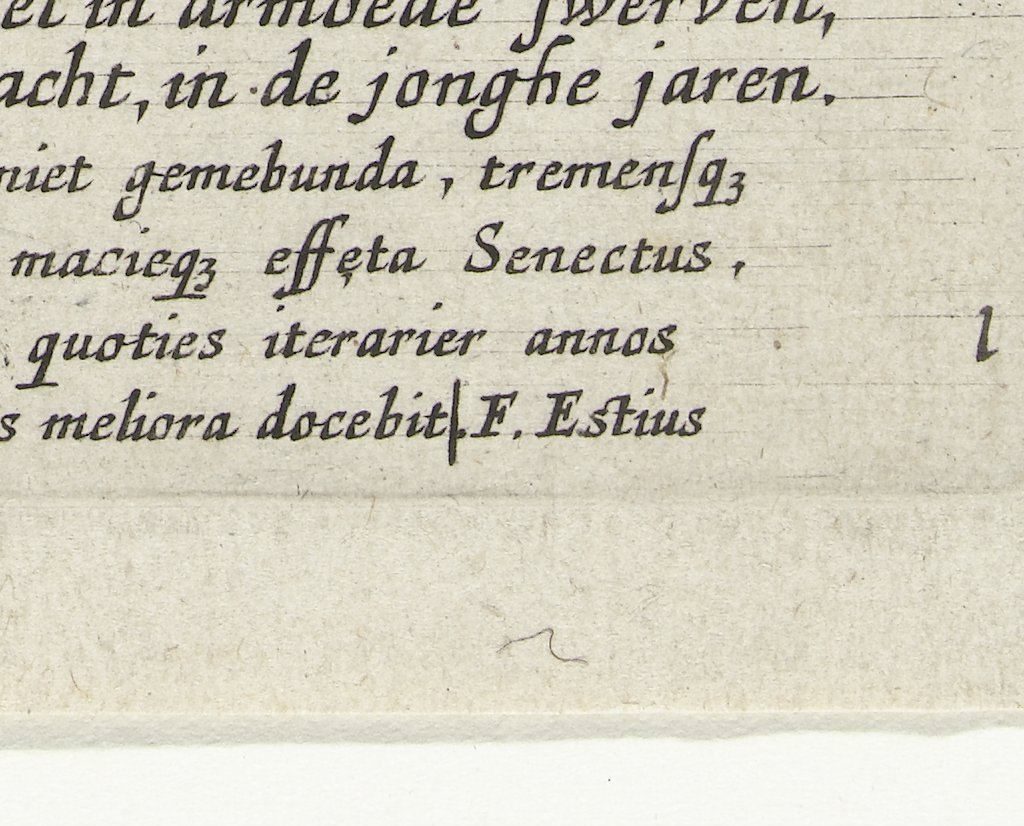 in armoede ſwerven,
acht, in de jonghe jaren.
niet gemebunda, tremenſqꝫ
macieqꝫ effęta Senectus,
quoties iterarier annos
s meliora docebit. F. Estius
l